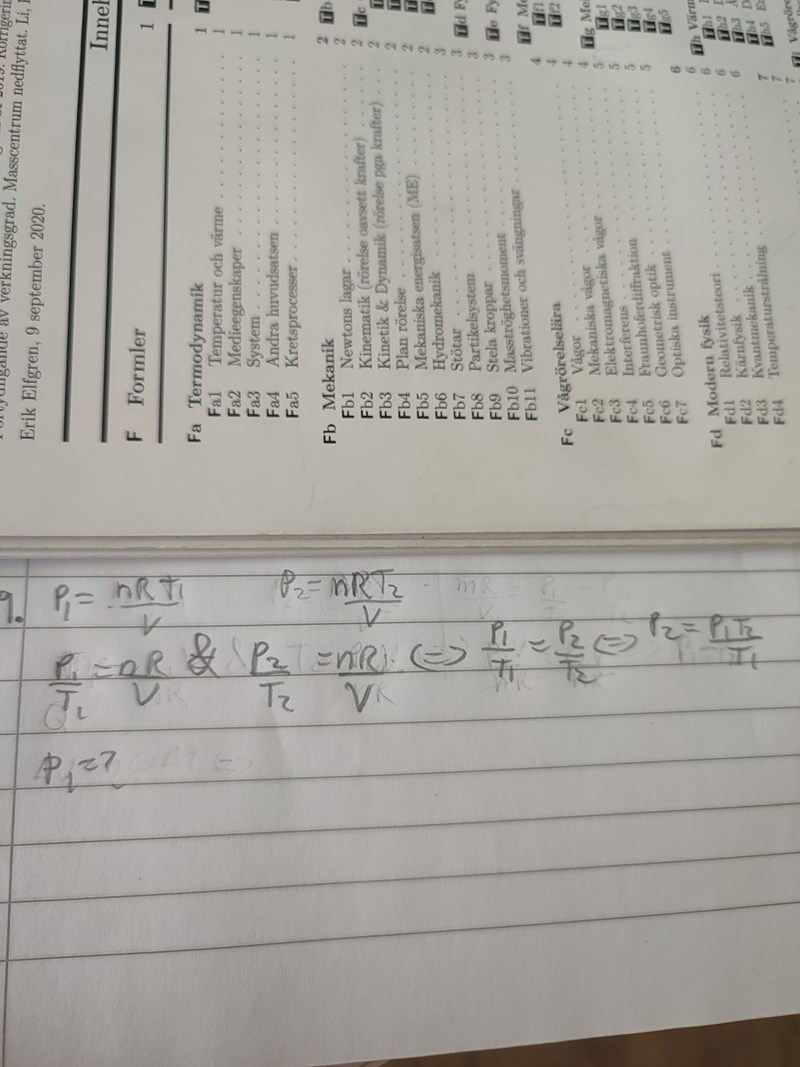 Erik Elfgren, 9 september 2020.
F Formler 1
Fa Termodynamik 1
Fa1 Temperatur och värme 1
Fa2 Medieegenskaper 1
Fa3 System 1
Fa4 Andra huvudsatsen 1
Fa5 Kretsprocesser 1
Fb Mekanik 2
Fb1 Newtons lagar 2
Fb2 Kinematik (rörelse oavsett krafter) 2
Fb3 Kinetik & Dynamik (rörelse pga krafter) 2
Fb4 Plan rörelse 2
Fb5 Mekaniska energisatsen (ME) 2
Fb6 Hydromekanik 3
Fb7 Stötar 3
Fb8 Partikelsystem 3
Fb9 Stela kroppar 3
Fb10 Masströghetsmoment 3
Fb11 Vibrationer och svängningar 4
Fc Vågrörelselära 4
Fc1 Vågor 4
Fc2 Mekaniska vågor 4
Fc3 Elektromagnetiska vågor 5
Fc4 Interferens 5
Fc5 Fraunhoferdiffraktion 5
Fc6 Geometrisk optik 5
Fc7 Optiska instrument 6
Fd Modern fysik 6
Fd1 Relativitetsteori 6
Fd2 Kärnfysik 6
Fd3 Kvantmekanik 7
Fd4 Temperaturstrålning 7
9. P₁ = nRT₁/V P₂ = nRT₂/V
P₁/T₁ = nR/V & P₂/T₂ = nR/V <=> P₁/T₁ = P₂/T₂ <=> P₂ = P₁T₂/T₁
P₁ = ?